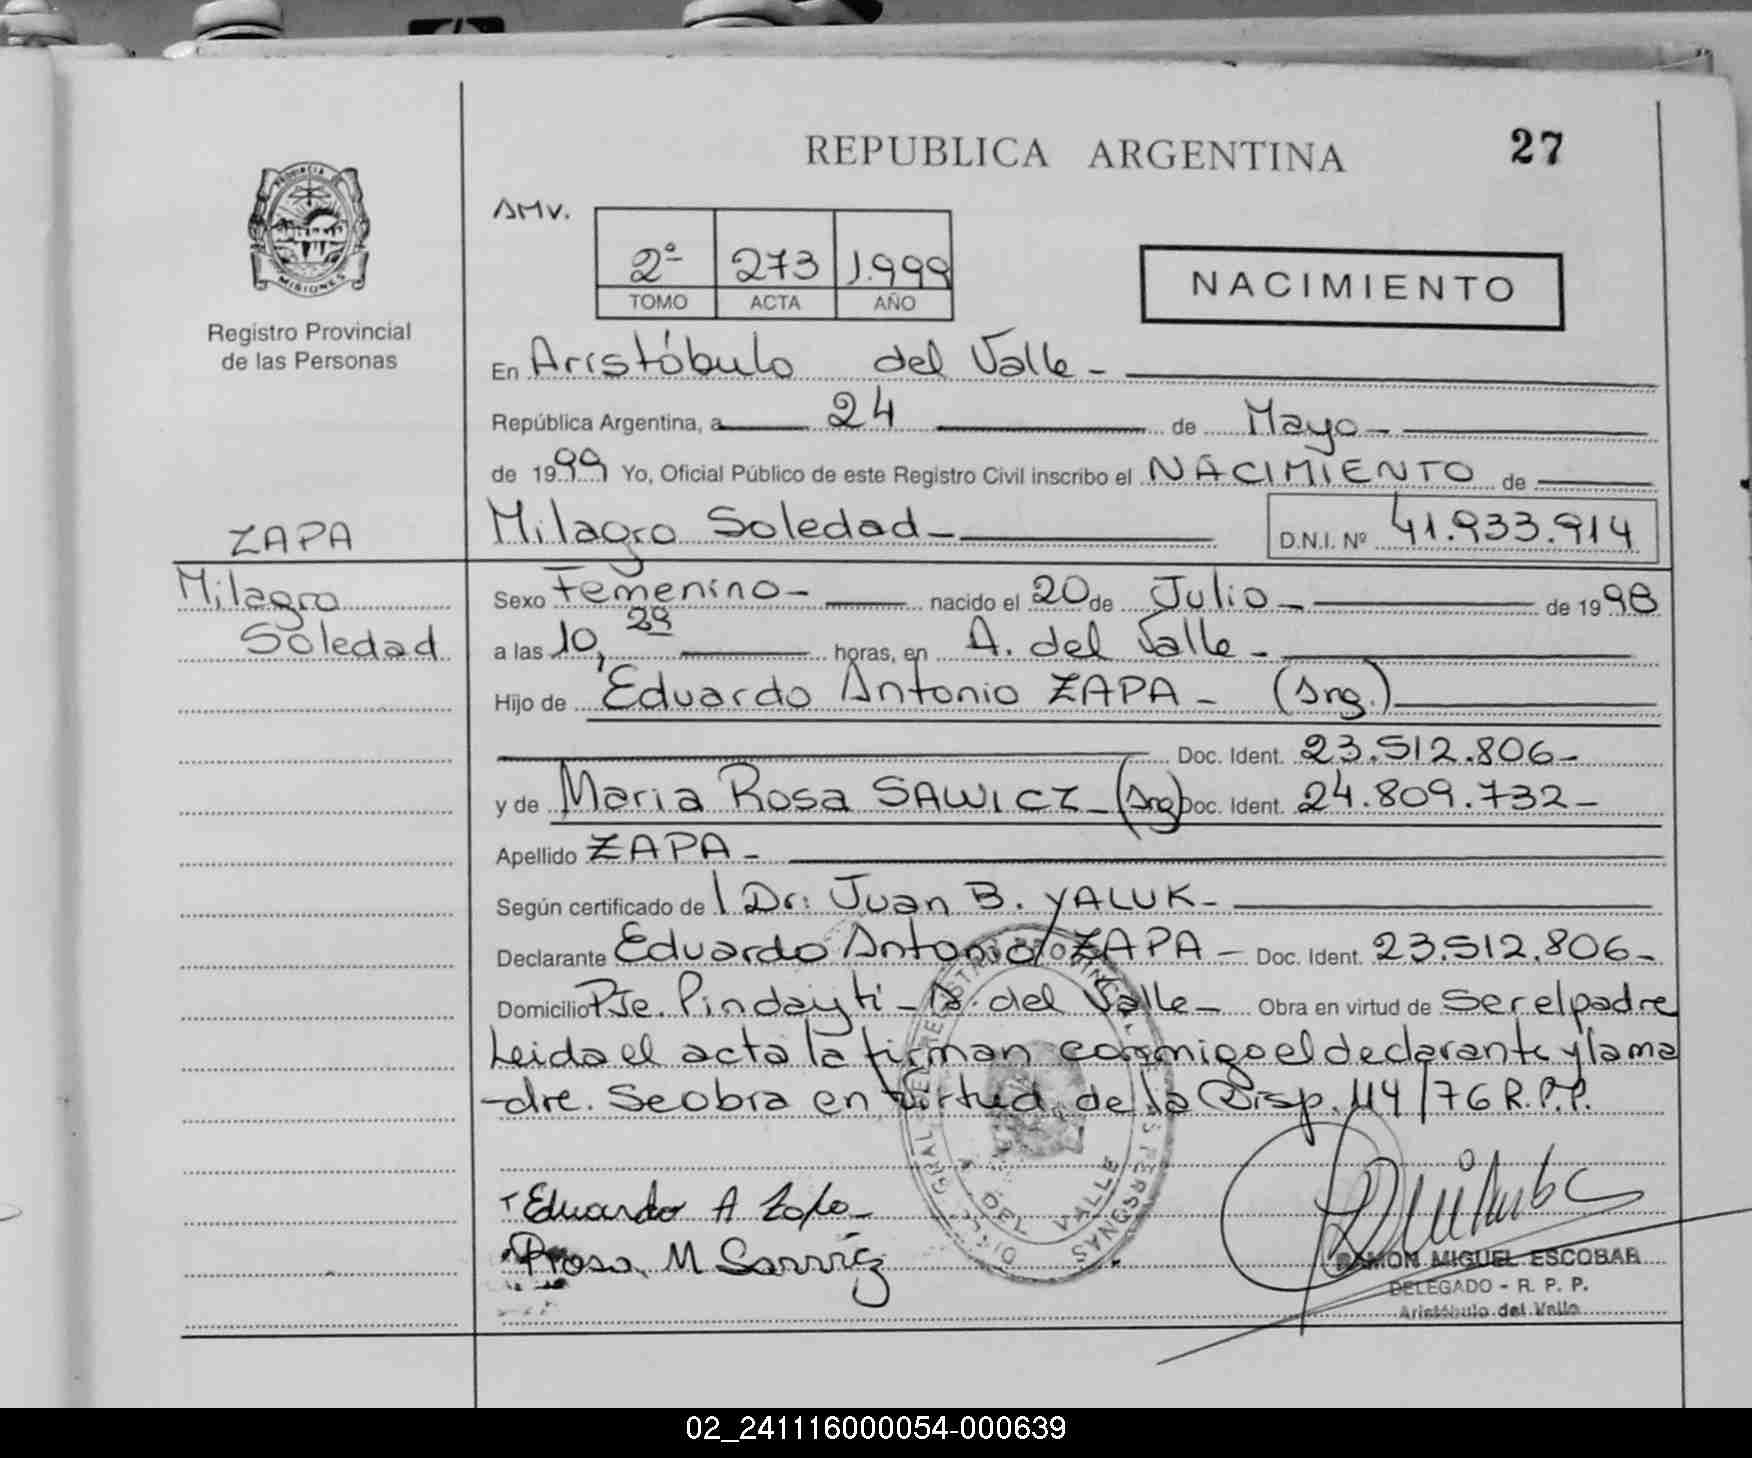 REPUBLICA ARGENTINA
27
PROVINCIA DE
MISIONES
Registro Provincial
de las Personas
AMV.
2º 273 1.999
TOMO ACTA AÑO
NACIMIENTO
En Aristóbulo del Valle -
República Argentina, a 24 de Mayo -
de 1999 Yo, Oficial Público de este Registro Civil inscribo el NACIMIENTO de
ZAPA
Milagro Soledad -
D.N.I. Nº 41.933.914
Milagro
Soledad
Sexo Femenino - nacido el 20 de Julio - de 1998
a las 10,29 horas, en A. del Valle -
Hijo de Eduardo Antonio ZAPA - (Arg.)
Doc. Ident. 23.512.806 -
y de Maria Rosa SAWICZ - (Arg) Doc. Ident. 24.809.732 -
Apellido ZAPA -
Según certificado de Dr: Juan B. YALUK -
Declarante Eduardo Antonio ZAPA - Doc. Ident. 23.512.806 -
Domicilio Pje. Pindayti - A. del Valle - Obra en virtud de ser el padre
Leida el acta la firman conmigo el declarante y la ma
-dre. Se obra en virtud de la Disp. 114/76 R.P.P.
Eduardo A Zapa
Rosa M Sawicz
A. DEL VALLE
RAMON MIGUEL ESCOBAR
DELEGADO - R. P. P.
Aristóbulo del Valle
02_241116000054-000639